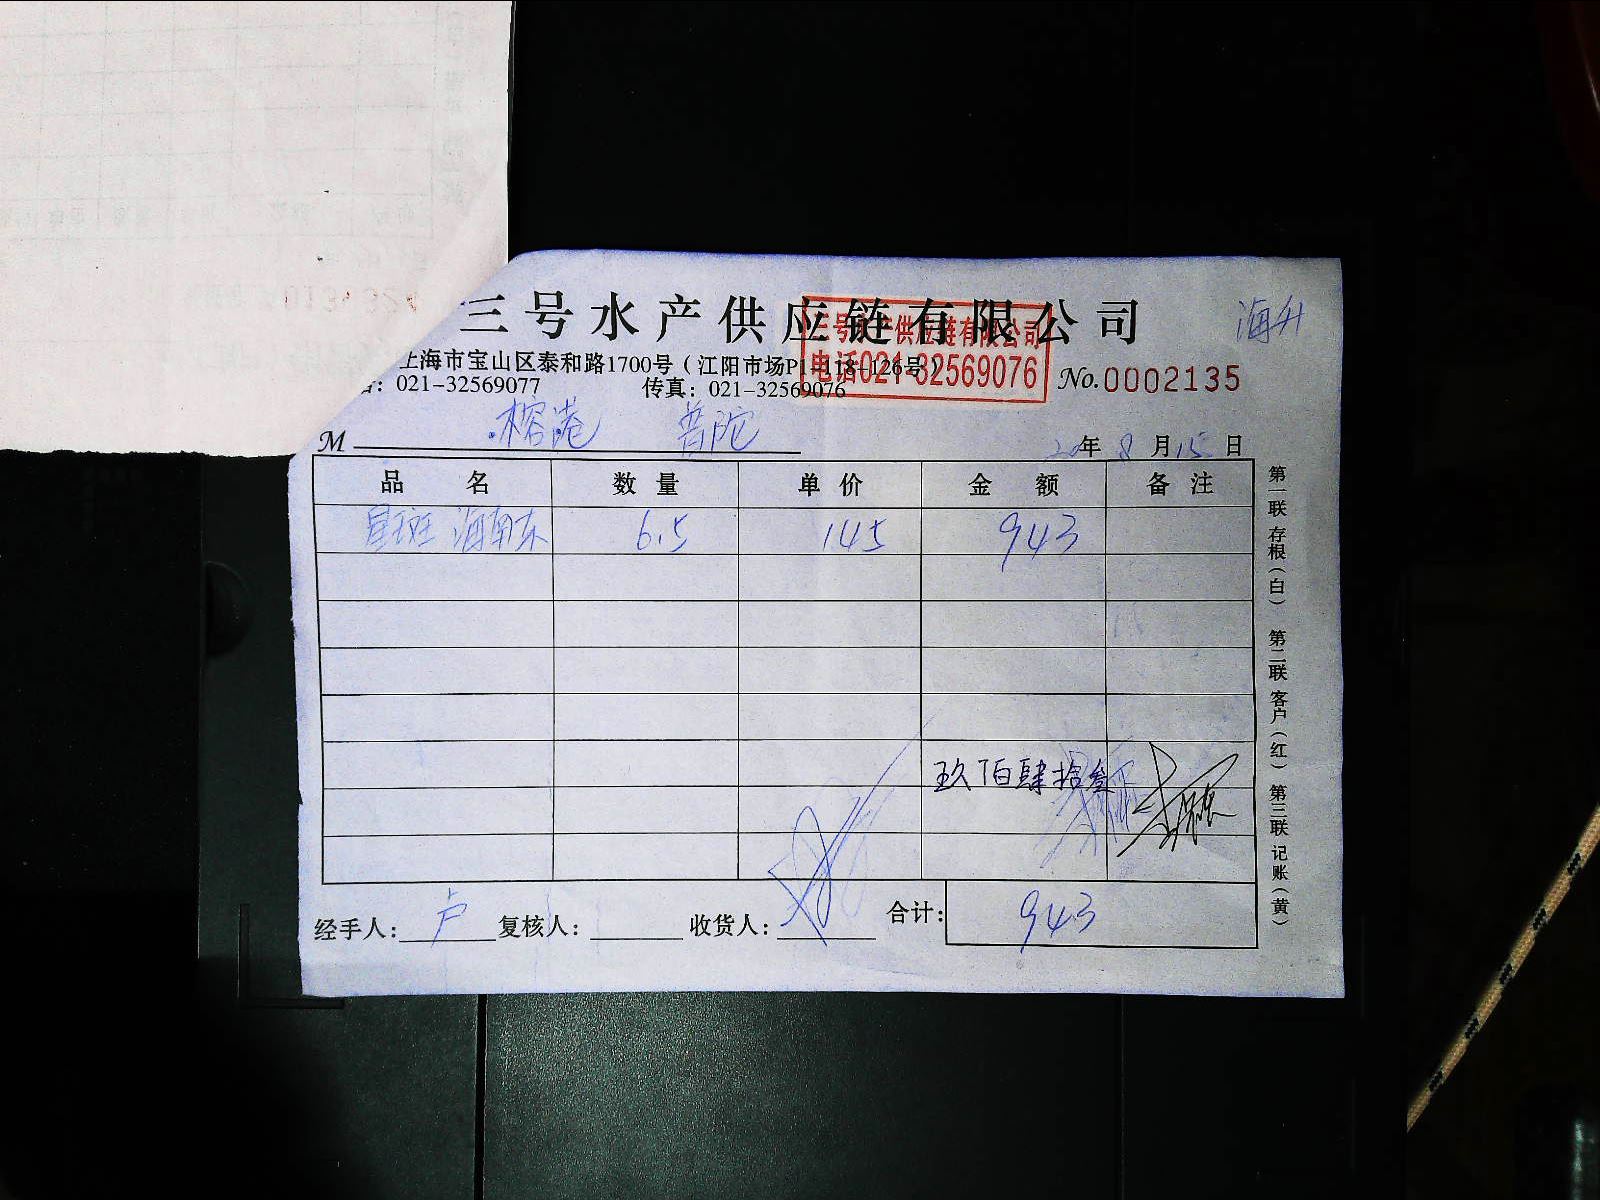 三号水产供应链有限公司
海升
三号水产供应链有限公司
电话021-32569076
上海市宝山区泰和路1700号（江阳市场P1-118-126号）
：021-32569077 传真：021-32569076
No.0002135
M 榕港 普陀
20年8月15日
品 名 数 量 单 价 金 额 备 注
星斑 海南东 6.5 145 943
玖佰肆拾叁
经手人：卢 复核人： 收货人： 合计：943
第一联 存根（白） 第二联 客户（红） 第三联 记账（黄）